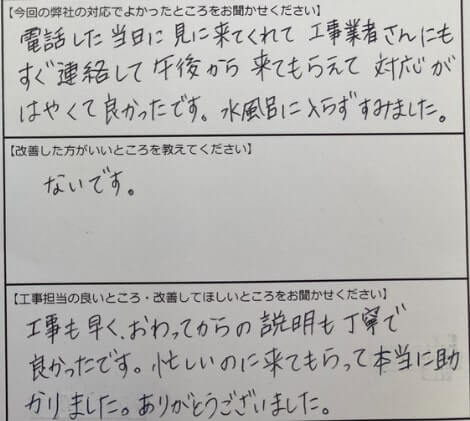 【今回の弊社の対応でよかったところをお聞かせください】
電話した当日に見に来てくれて 工事業者さんにも
すぐ連絡して午後から来てもらえて対応が
はやくて良かったです。水風呂に入らずすみました。
【改善した方がいいところを教えてください】
ないです。
【工事担当の良いところ・改善してほしいところをお聞かせください】
工事も早く、おわってからの説明も丁寧で
良かったです。忙しいのに来てもらって本当に助
かりました。ありがとうございました。